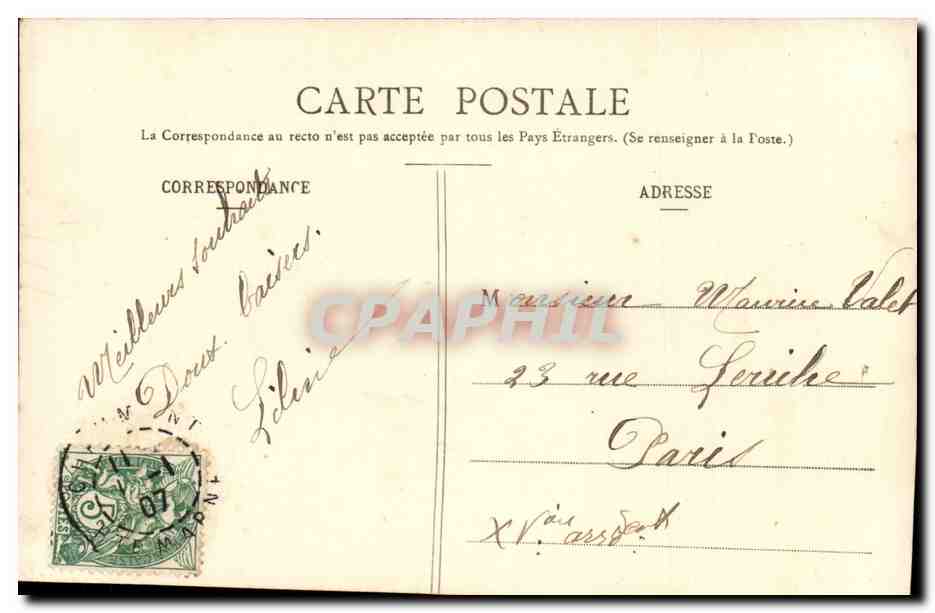 CARTE POSTALE
La Correspondance au recto n'est pas acceptée par tous les Pays Étrangers. (Se renseigner à la Poste.)
CORRESPONDANCE
ADRESSE
Meilleurs souhaits
Doux baisers.
Monsieur Maurice Valet
23 rue
Paris
XVe
CPAPHIL
11 -1
07
MARNE